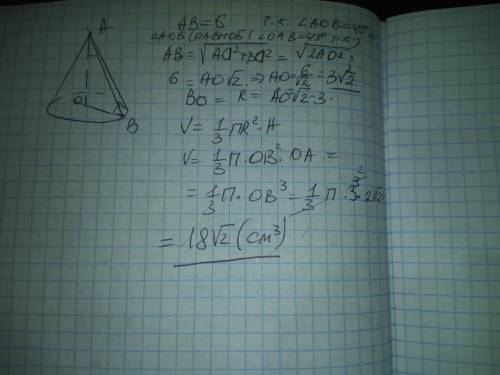 A
O
B
AB=6 т.к. ∠AOB=45°
△AOB (OAB=OB (∠OAB=45° т.к.)
AB = √AO²+BO² = √2AO² ;
6 = AO√2 ⇒ AO = 6/√2 = 3√2
BO = R = AO = √2·3.
V = 1/3 ПR²·H
V = 1/3 П·OB²·OA =
= 1/3 П·OB³ = 1/3 П·3³·2√2 =
= 18√2 (см³)